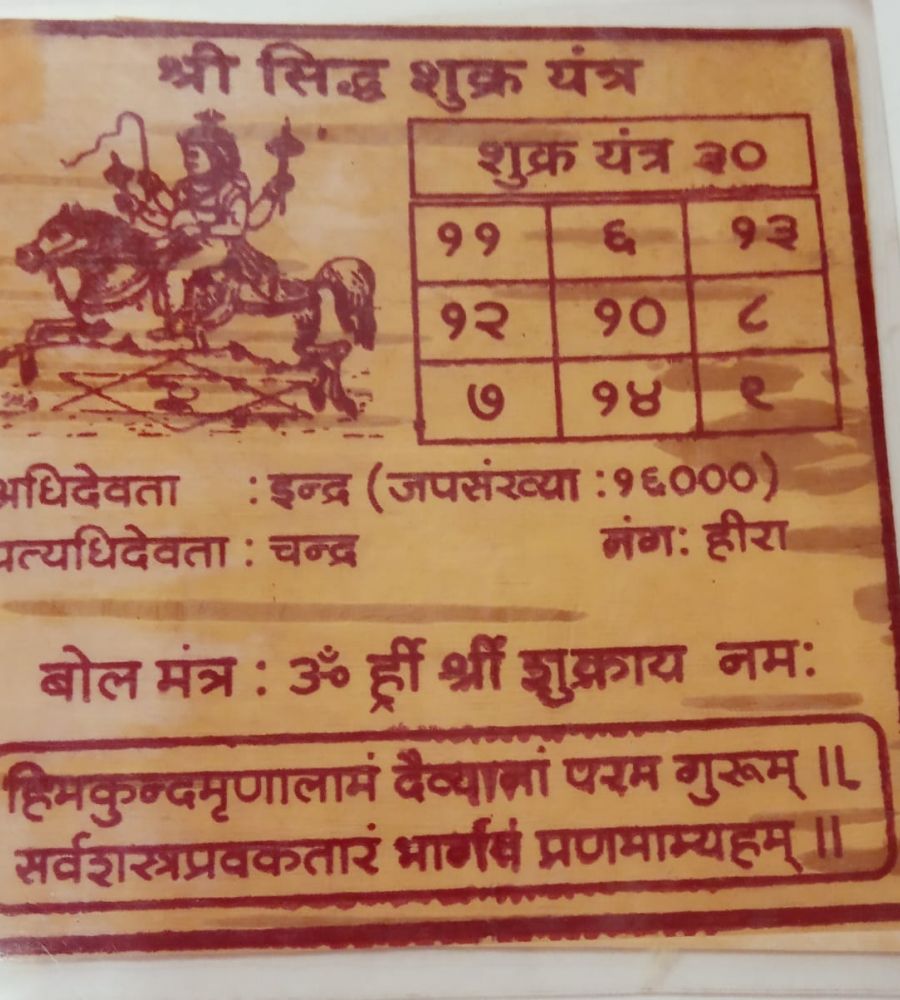 श्री सिद्ध शुक्र यंत्र
शुक्र यंत्र ३०
११ ६ १३
१२ १० ८
७ १४ ९
अधिदेवता : इन्द्र (जपसंख्या : १६०००)
प्रत्यधिदेवता : चन्द्र नंग: हीरा
बोल मंत्र : ॐ ह्रीं श्रीं शुक्राय नम:
हिमकुन्दमृणालामं दैव्यानां परम गुरूम् ॥
सर्वशस्त्रप्रवकतारं भार्गवं प्रणमाम्यहम् ॥